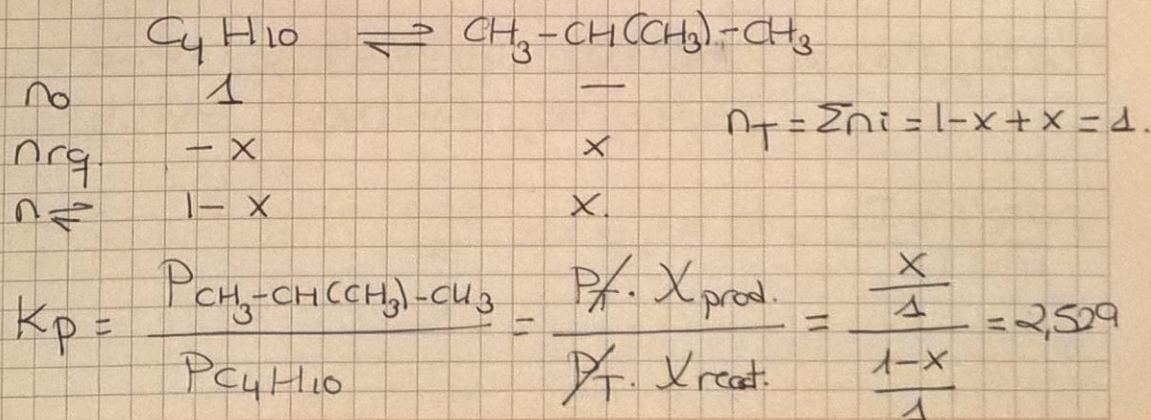 C₄H₁₀ ⇌ CH₃-CH(CH₃)-CH₃
n₀ 1 —
nrq. - x x
n⇌ 1- x x.
n_T = Σni = 1-x + x = 1.
Kp = P_CH₃-CH(CH₃)-CH₃ / P_C₄H₁₀ = P_T. X prod. / P_T. X react. = (x/1) / ((1-x)/1) = 2,529